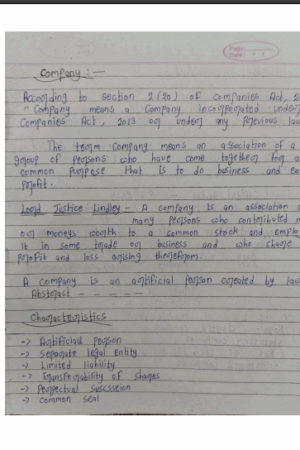 Page:
Date:
Company :-
According to section 2 (20) of Companies Act, 20
"Company means a Company incorporated under
Companies Act, 2013 or under any previous law
The term Company means an association of a
group of persons who have come together for a
common purpose that is to do business and ea
profit.
Lord Justice Lindley - A company is an association o
many persons who contributed m
or moneys worth to a common stock and emplo
it in some trade or business and who share
profit and loss arising therefrom.
A company is an artificial person created by law
Abstract - - - - -
Characteristics
-> Artificial person
-> Separate legal entity
-> Limited liability
-> Transferability of shares
-> Perpectual Succssion
-> Common seal